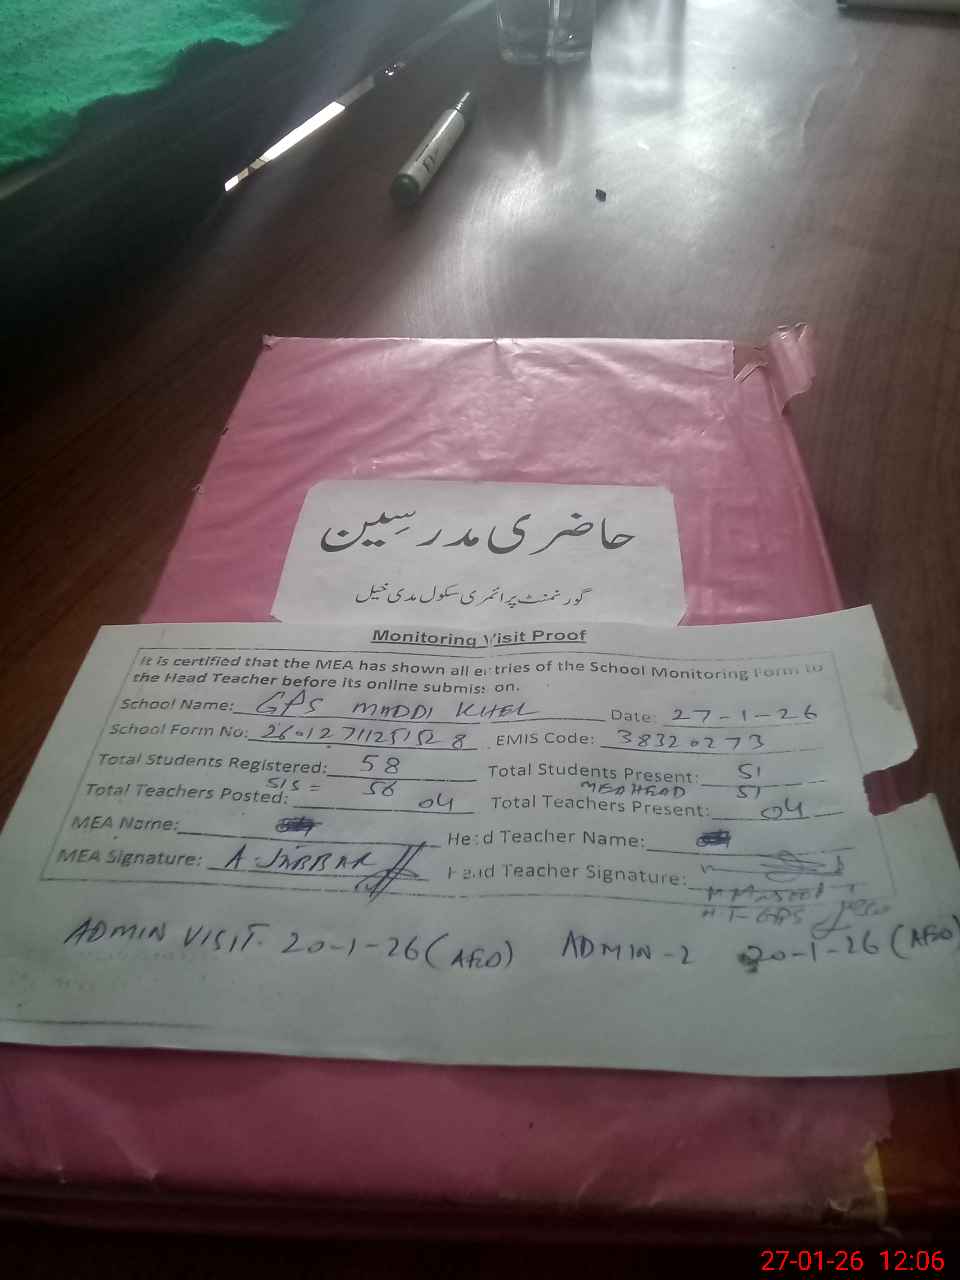 حاضری مدرسین
گورنمنٹ پرائمری سکول مدی خیل
Monitoring Visit Proof
It is certified that the MEA has shown all entries of the School Monitoring Form to
the Head Teacher before its online submission.
School Name: GPS MADDI KHEL Date: 27-1-26
School Form No: EMIS Code: 38320273
Total Students Registered: 58 Total Students Present: 51
SIS = 56 MEA HEAD 51
Total Teachers Posted: 04 Total Teachers Present: 04
MEA Name: Head Teacher Name:
MEA Signature: A. JABBAR Head Teacher Signature:
H.T GPS
ADMIN VISIT. 20-1-26 (AEO) ADMIN-2 20-1-26 (AEO)
27-01-26 12:06